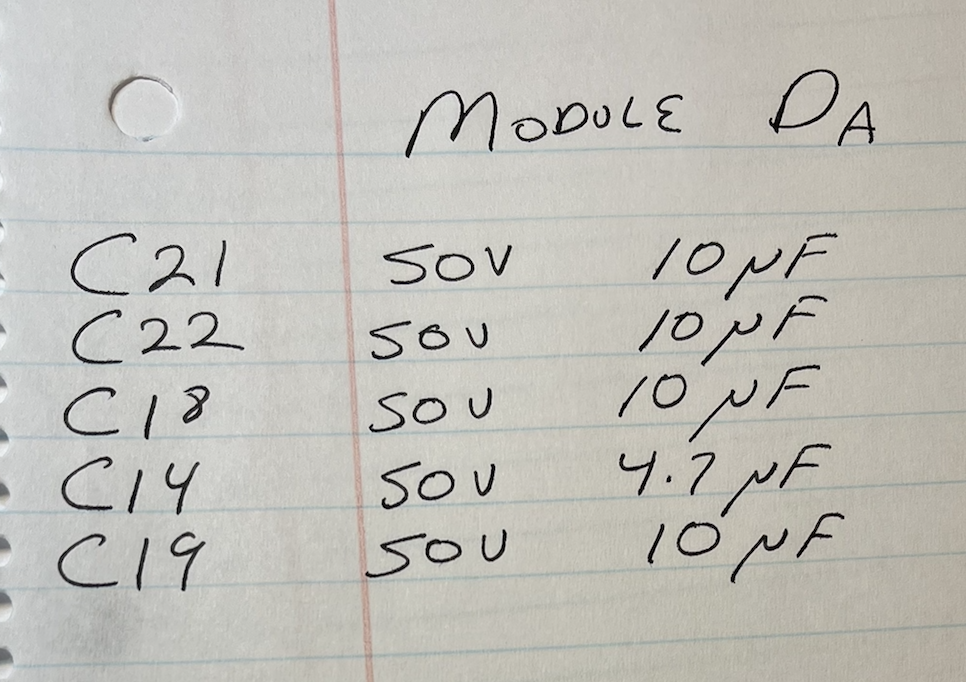 MODULE DA
C21 50V 10 µF
C22 50V 10 µF
C18 50V 10 µF
C14 50V 4.7 µF
C19 50V 10 µF